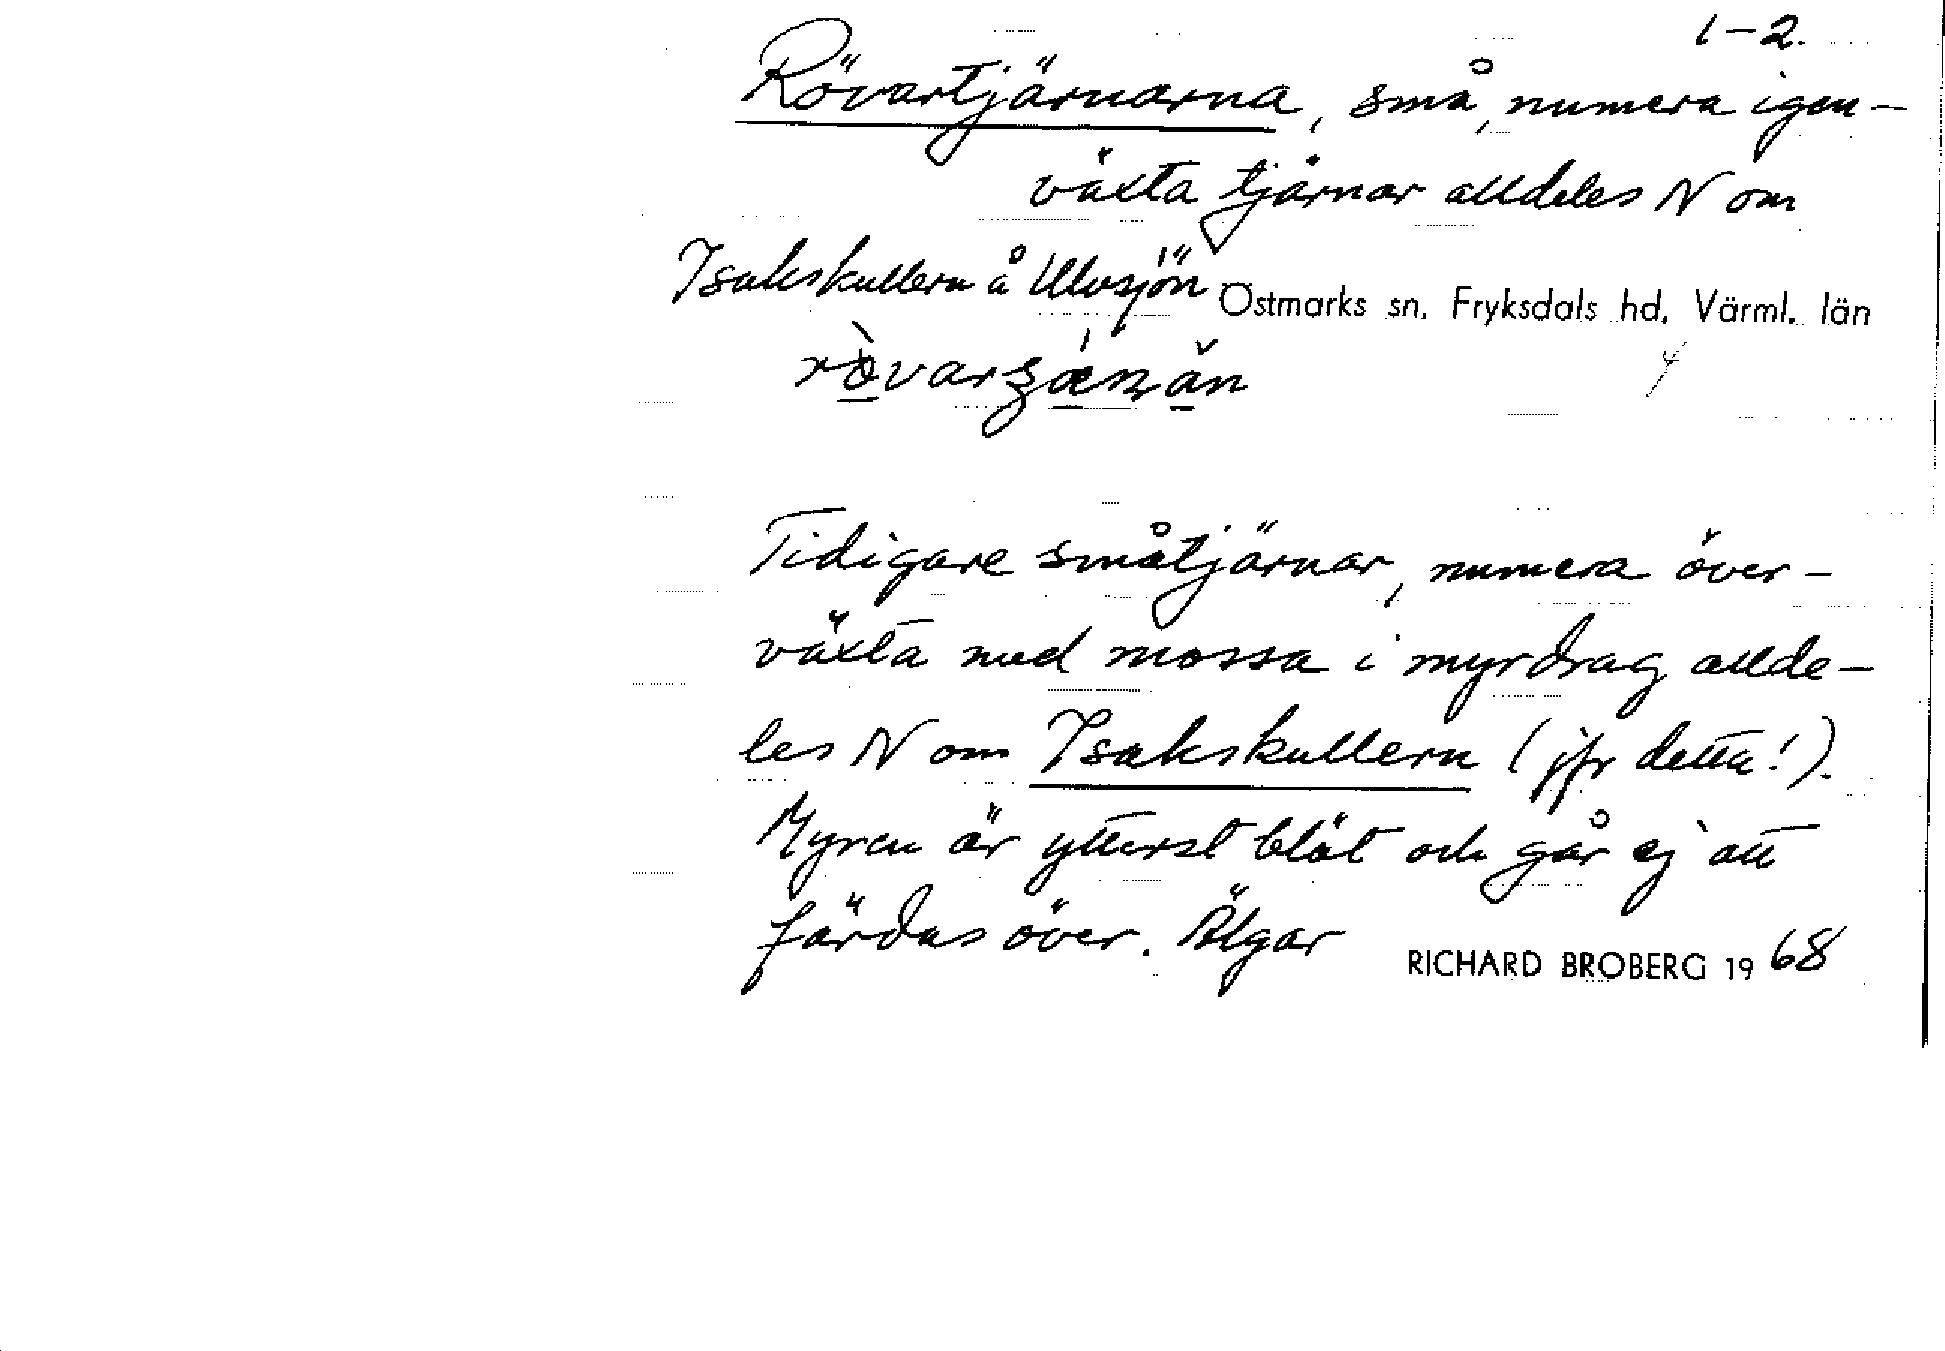 1-2.
Rövartjärnarna, små, numera igen-
växta tjärnar alldeles N om
Isakskullern å Ulvsjön Östmarks sn. Fryksdals hd, Värml. län
Tidigare småtjärnar, numera över-
växta med mossa i myrdrag allde-
les N om Isakskullern (jfr detta!).
Myren är ytterst blöt och går ej att
färdas över. Älgar RICHARD BROBERG 1968